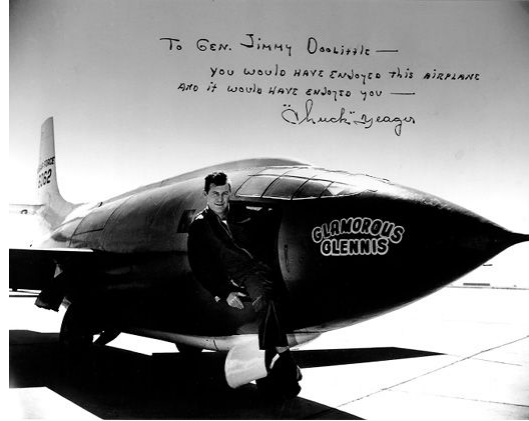 To Gen. Jimmy Doolittle —
You would have enjoyed this airplane
and it would have enjoyed you —
"Chuck" Yeager
6062
GLAMOROUS
GLENNIS